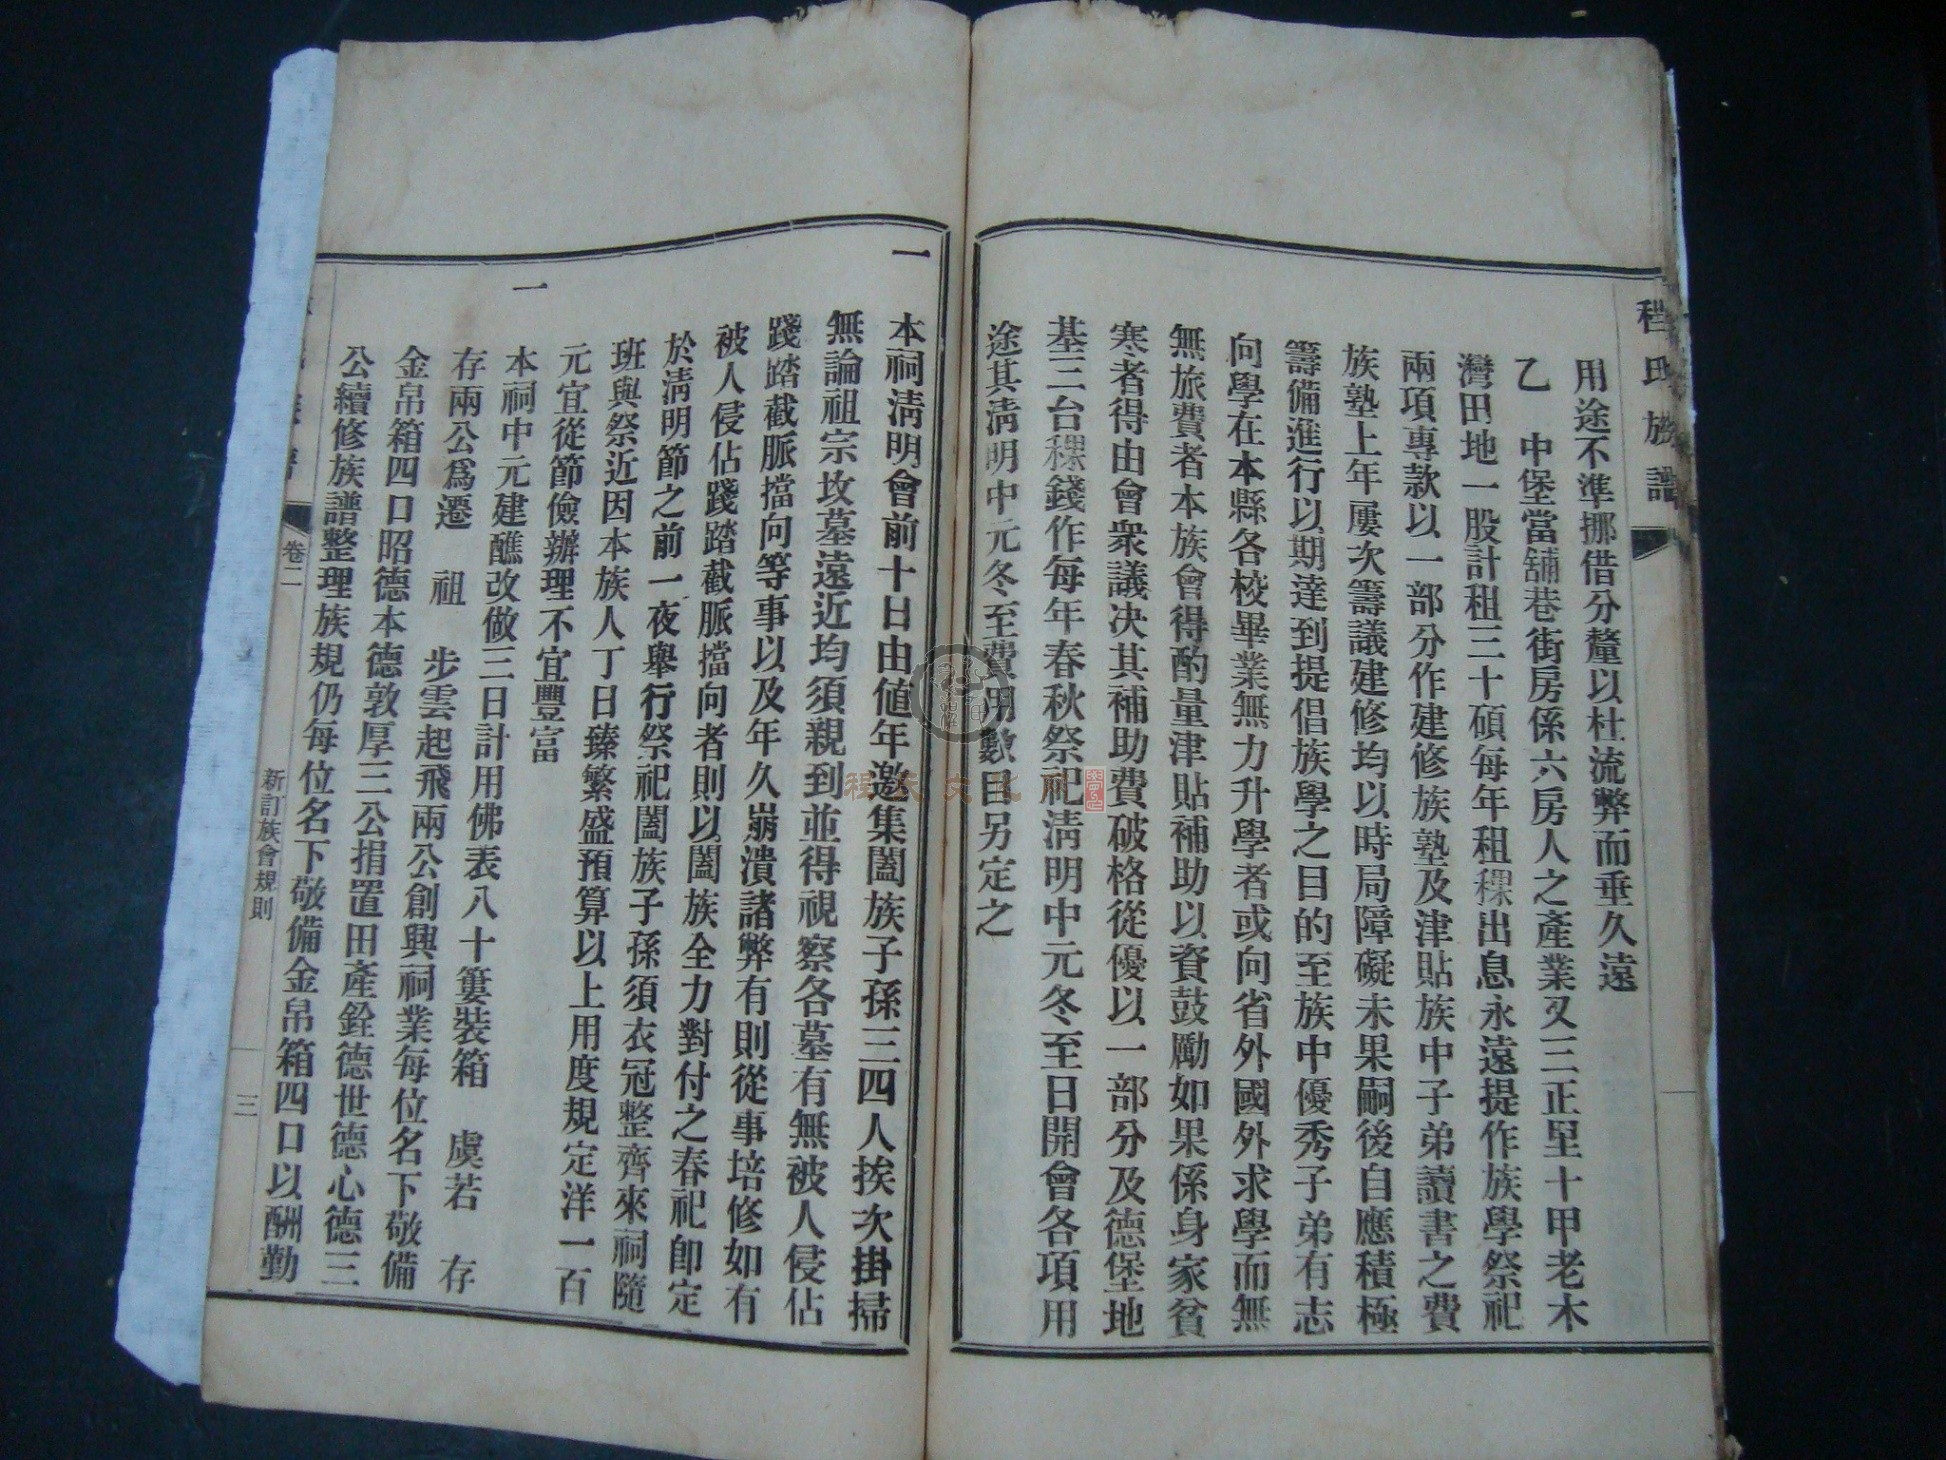 程氏族譜
用途不準挪借分釐以杜流弊而垂久遠
乙　中堡當舖巷街房係六房人之產業又三正里十甲老木
灣田地一股計租三十碩每年租稞出息永遠提作族學祭祀
兩項專款以一部分作建修族塾及津貼族中子弟讀書之費
族塾上年屢次籌議建修均以時局障礙未果嗣後自應積極
籌備進行以期達到提倡族學之目的至族中優秀子弟有志
向學在本縣各校畢業無力升學者或向省外國外求學而無
無旅費者本族會得酌量津貼補助以資鼓勵如果係身家貧
寒者得由會衆議决其補助費破格從優以一部分及德堡地
基三台稞錢作每年春秋祭祀清明中元冬至日開會各項用
途其清明中元冬至費用數目另定之
一　本祠清明會前十日由值年邀集闔族子孫三四人挨次掛掃
無論祖宗坟墓遠近均須親到並得視察各墓有無被人侵佔
踐踏截脈擋向等事以及年久崩潰諸弊有則從事培修如有
被人侵佔踐踏截脈擋向者則以闔族全力對付之春祀即定
於清明節之前一夜舉行祭祀闔族子孫須衣冠整齊來祠隨
班與祭近因本族人丁日臻繁盛預算以上用度規定洋一百
元宜從節儉辦理不宜豐富
一　本祠中元建醮改做三日計用佛表八十簍裝箱　虞若　存
存兩公爲遷　祖　步雲起飛兩公創興祠業每位名下敬備
金帛箱四口昭德本德敦厚三公捐置田產銓德世德心德三
公續修族譜整理族規仍每位名下敬備金帛箱四口以酬勤
卷二
新訂族會規則
三
程氏文化